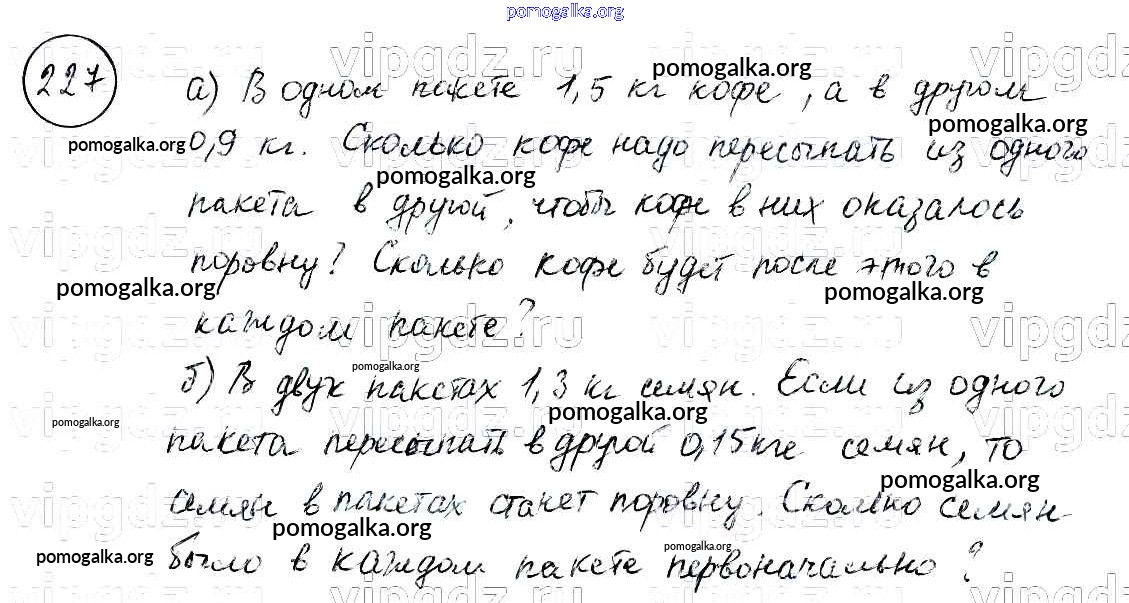 pomogalka.org
227
vipgdz.ru vipgdz.ru vipgdz
pomogalka.org
а) В одном пакете 1,5 кг кофе, а в другом
pomogalka.org
pomogalka.org 0,9 кг. Сколько кофе надо пересыпать из одного
pomogalka.org
пакета в другой, чтобы кофе в них оказалось
vipgdz.ru vipgdz.ru vipgdz
поровну? Сколько кофе будет после этого в
pomogalka.org pomogalka.org
каждом пакете?
vipgdz.ru vipgdz.ru vipgdz
pomogalka.org
б) В двух пакетах 1,3 кг семян. Если из одного
pomogalka.org pomogalka.org
vipgdz.ru vipgdz.ru vipgdz
пакета пересыпать в другой 0,15 кг семян, то
pomogalka.org
семян в пакетах станет поровну. Сколько семян
vipgdz.ru vipgdz.ru vipgdz
pomogalka.org
pomogalka.org pomogalka.org
было в каждом пакете первоначально?
vipgdz.ru vipgdz.ru vipgdz